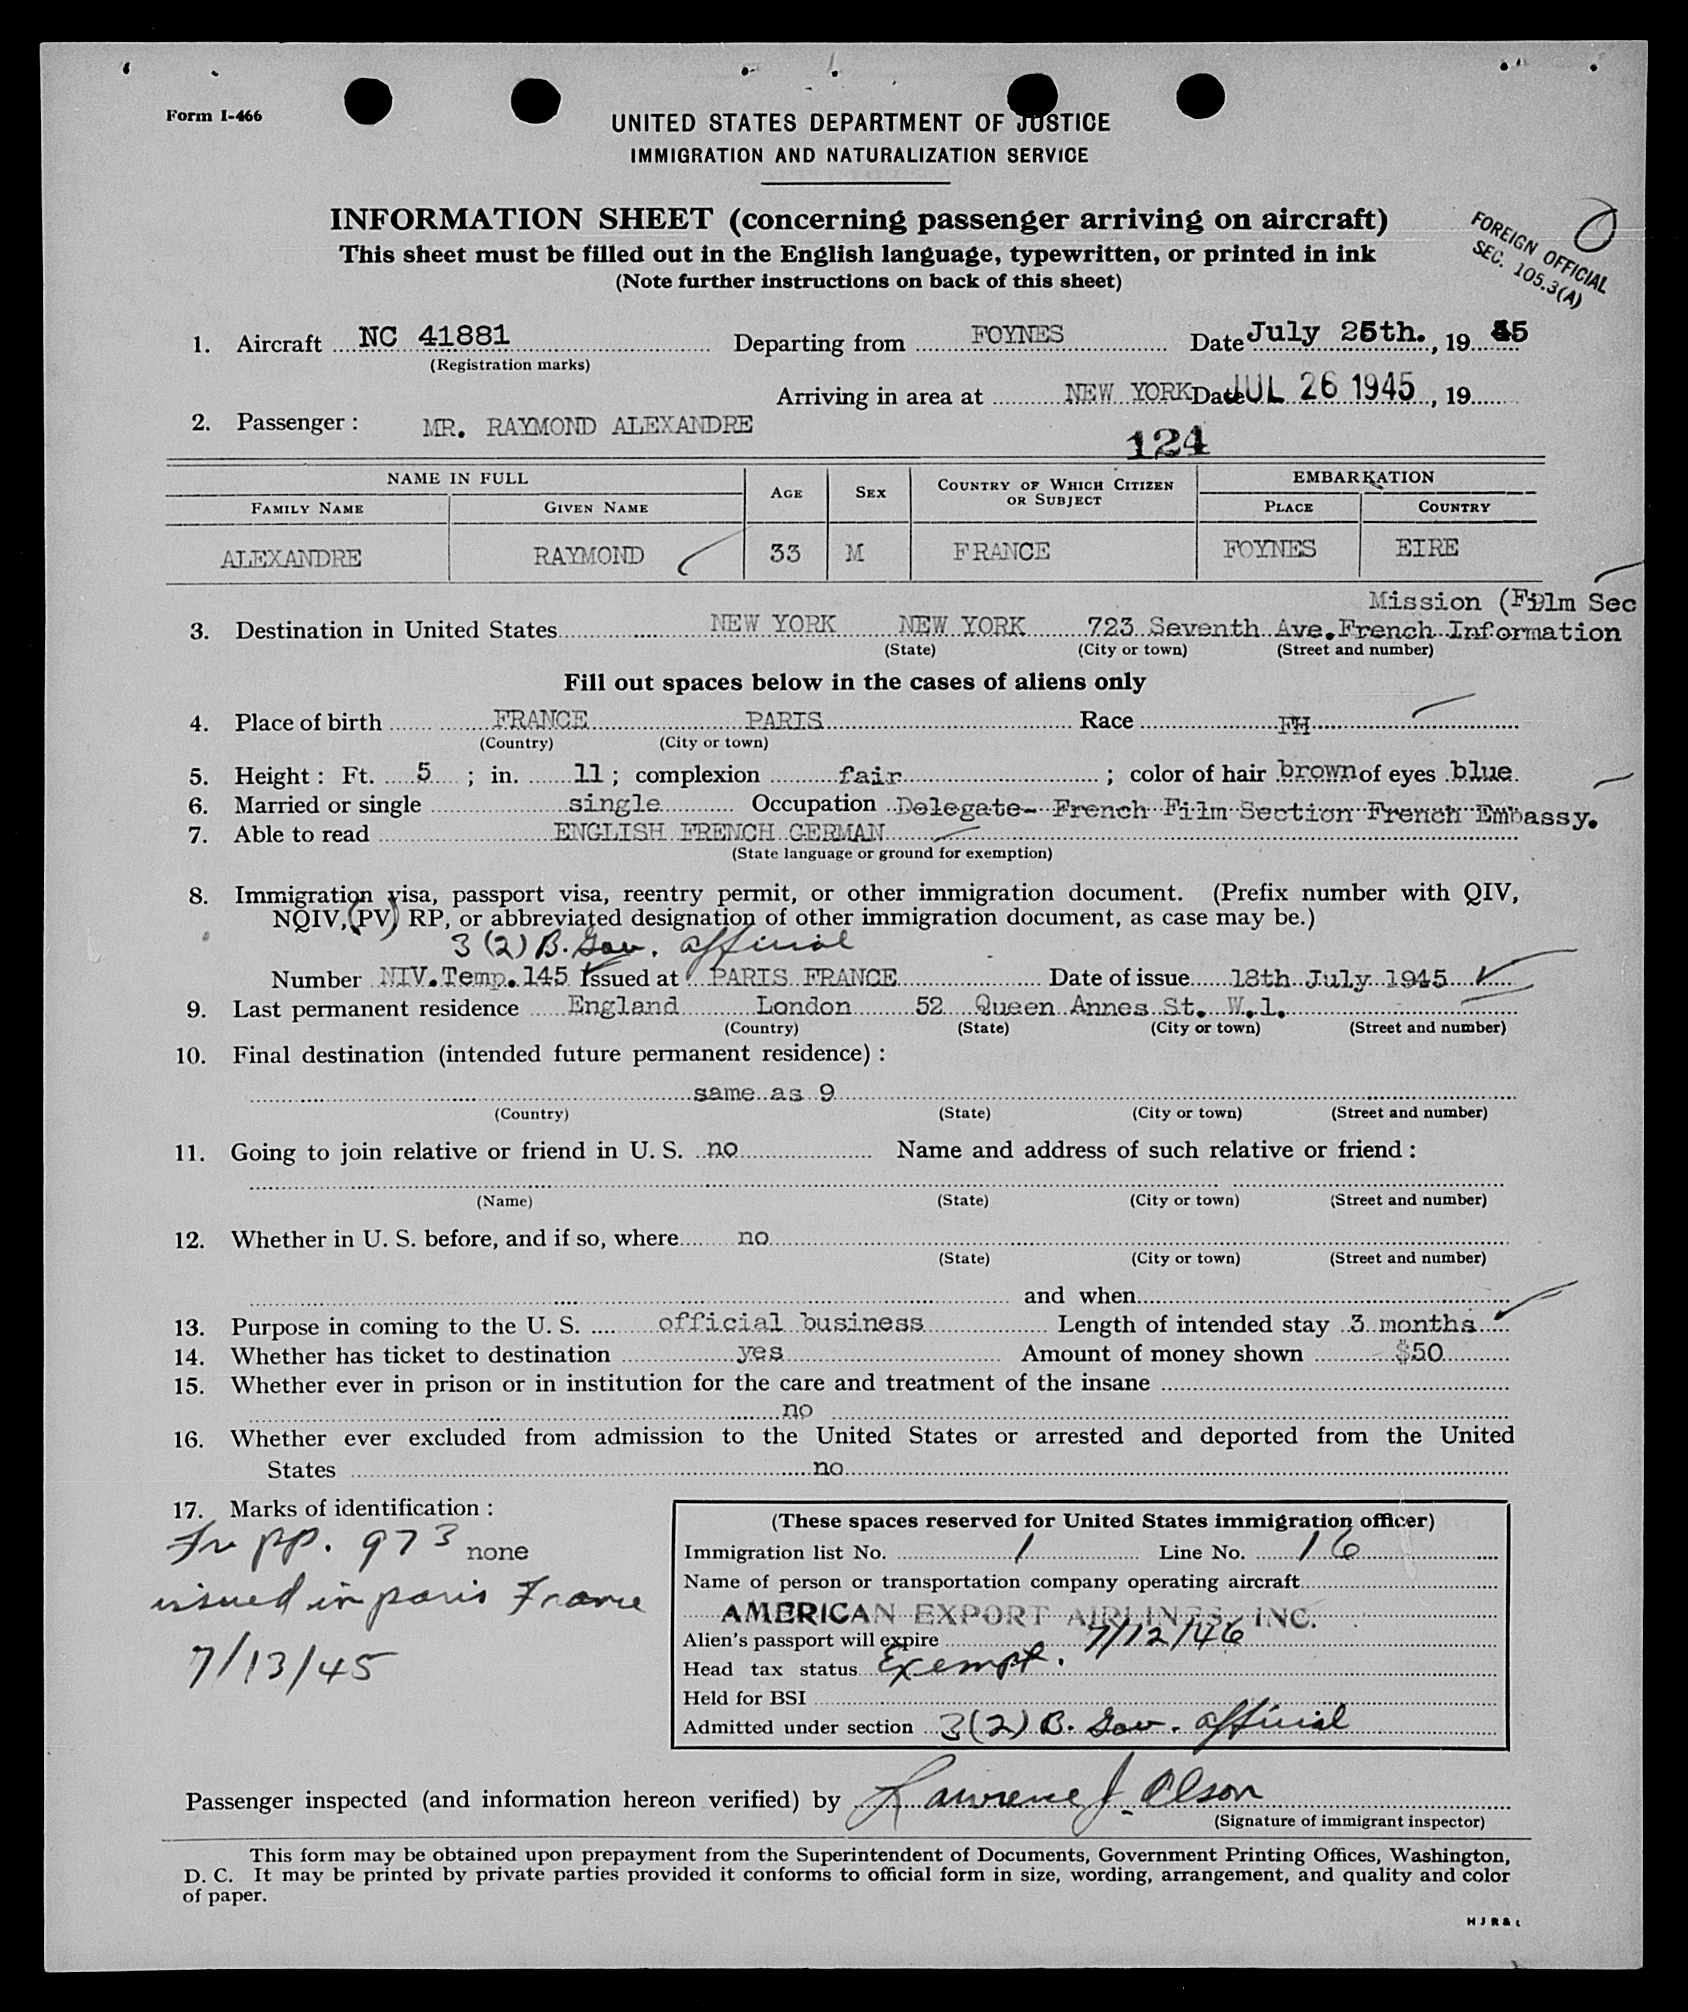 Form I-466
UNITED STATES DEPARTMENT OF JUSTICE
IMMIGRATION AND NATURALIZATION SERVICE
INFORMATION SHEET (concerning passenger arriving on aircraft)
This sheet must be filled out in the English language, typewritten, or printed in ink
(Note further instructions on back of this sheet)
FOREIGN OFFICIAL
SEC. 105.3(A)
1. Aircraft NC 41881 Departing from FOYNES Date July 25th., 19 45
(Registration marks)
Arriving in area at NEW YORK Date JUL 26 1945, 19
2. Passenger: MR. RAYMOND ALEXANDRE
124
NAME IN FULL AGE SEX COUNTRY OF WHICH CITIZEN OR SUBJECT EMBARKATION
FAMILY NAME GIVEN NAME PLACE COUNTRY
ALEXANDRE RAYMOND 33 M FRANCE FOYNES EIRE
Mission (Film Sec
3. Destination in United States NEW YORK NEW YORK 723 Seventh Ave. French Information
(State) (City or town) (Street and number)
Fill out spaces below in the cases of aliens only
4. Place of birth FRANCE PARIS Race FH
(Country) (City or town)
5. Height: Ft. 5; in. 11; complexion fair; color of hair brown of eyes blue
6. Married or single single Occupation Delegate- French Film Section French Embassy.
7. Able to read ENGLISH FRENCH GERMAN
(State language or ground for exemption)
8. Immigration visa, passport visa, reentry permit, or other immigration document. (Prefix number with QIV,
NQIV, PV, RP, or abbreviated designation of other immigration document, as case may be.)
3 (2) B. Gov. official
Number NIV. Temp. 145 Issued at PARIS FRANCE Date of issue 18th July 1945
9. Last permanent residence England London 52 Queen Annes St. W.1.
(Country) (State) (City or town) (Street and number)
10. Final destination (intended future permanent residence):
same as 9
(Country) (State) (City or town) (Street and number)
11. Going to join relative or friend in U. S. no Name and address of such relative or friend:
(Name) (State) (City or town) (Street and number)
12. Whether in U. S. before, and if so, where no
(State) (City or town) (Street and number)
and when
13. Purpose in coming to the U. S. official business Length of intended stay 3 months
14. Whether has ticket to destination yes Amount of money shown $50
15. Whether ever in prison or in institution for the care and treatment of the insane
no
16. Whether ever excluded from admission to the United States or arrested and deported from the United
States no
17. Marks of identification:
Fr pp. 973 none
issued in paris France
7/13/45
(These spaces reserved for United States immigration officer)
Immigration list No. 1 Line No. 16
Name of person or transportation company operating aircraft
AMERICAN EXPORT AIRLINES, INC.
Alien's passport will expire 7/12/46
Head tax status Exempt.
Held for BSI
Admitted under section 3(2) B. Gov. official
Passenger inspected (and information hereon verified) by Lawrence J. Olson
(Signature of immigrant inspector)
This form may be obtained upon prepayment from the Superintendent of Documents, Government Printing Offices, Washington,
D. C. It may be printed by private parties provided it conforms to official form in size, wording, arrangement, and quality and color
of paper.